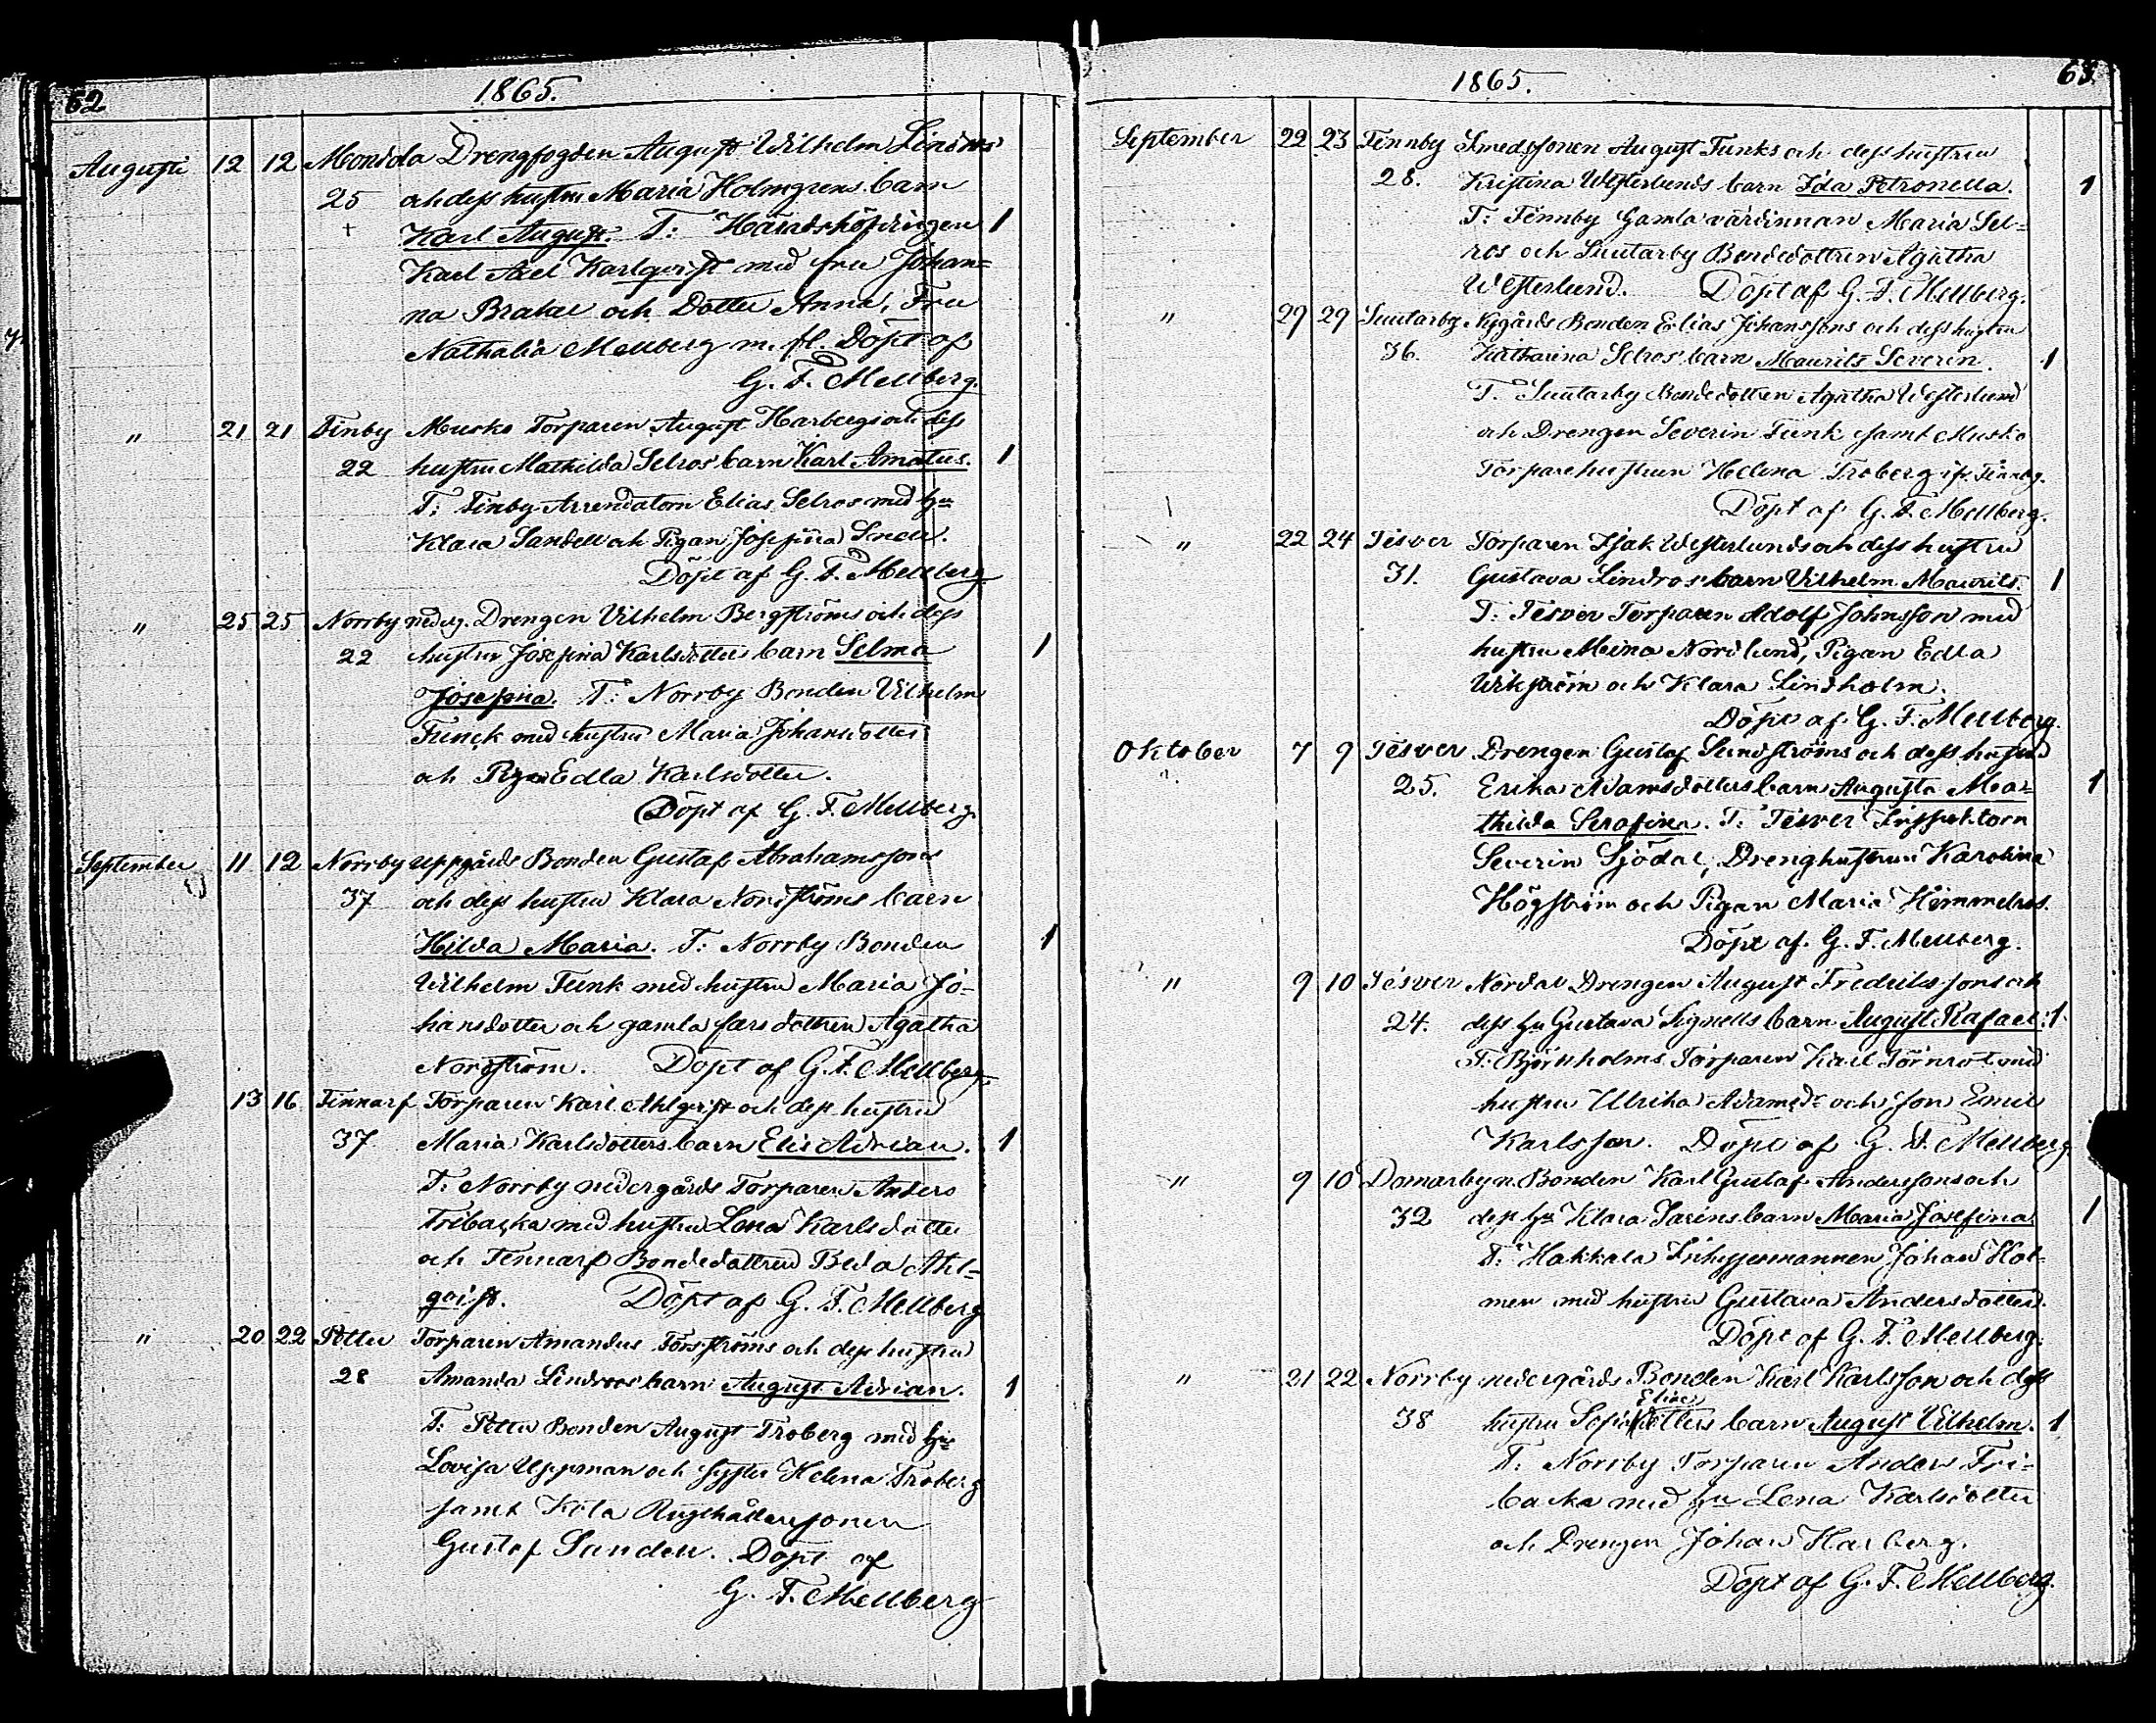 62
1865.
Augusti 12 12 Monsola Drengfogden August Wilhelm
25 och dess hustru Maria Holmgrens barn
Karl August. T: Häradshöfdingen 1
Karl Axel Karlqvist med fru Johan=
na Brakel och Dotter Anna, Fru
Nathalia Mellberg m. fl. Döpt af
G. F. Mellberg.
" 21 21 Finby Musko Torparen August Harbergs och dess
22 hustru Mathilda Selros barn Karl Amatus. 1
T: Finby Arrendatorn Elias Selros med hu
Klara Sandell och Pigan Josefina
Döpt af G. F. Mellberg
" 25 25 Norrby nederg. Drengen Vilhelm Bergströms och dess
22 hustru Josefina Karlsdotter barn Selma 1
Josefina. T: Norrby Bonden Vilhelm
Funck med hustru Maria Johansdotter
och Pigan Edla Karlsdotter.
Döpt af G. F. Mellberg.
September 11 12 Norrby uppgårds Bonden Gustaf Abrahamssons
37 och dess hustru Klara Nordströms barn
Hilda Maria. T: Norrby Bonden 1
Wilhelm Funk med hustru Maria Jo-
hansdotter och gamla farsdottren Agatha
Nordström. Döpt af G. F. Mellberg
13 16 Finnarf Torparen Karl Ahlqvist och dess hustru
37 Maria Karlsdotters barn Elis Adrian. 1
T: Norrby nedergårds Torparen Anders
Fribacka med hustru Lena Karlsdotter
och Finnarf Bondedottren Beda Ahl-
qvist. Döpt af G. F. Mellberg
" 20 22 Petter Torparen Amandus Forsströms och dess hustru
28 Amanda Lindroos barn August Adrian. 1
T: Petter Bonden August Froberg med hu
Lovisa Uppman och syster Helena Froberg
samt Kila
Gustaf Sundell. Döpt af
G. F. Mellberg
1865.
63
September 22 23 Finnby Smedssonen August Funks och dess hustru
28. Kristina Westerlunds barn Ida Petronella. 1
T: Finnby Gamla värdinnan Maria Sel=
ros och Suutarby Bondedottren Agatha
Westerlund. Döpt af G. F. Mellberg.
" 29 29 Suutarby Nygårds Bonden Elias Johanssons och dess hustru
36. Katharina Selros barn Maurits Severin. 1
T. Suutarby Bondedottren Agatha Westerlund
och Drengen Severin Funk samt Musko
Torparehustrun Helena Froberg ifr. Finnby.
Döpt af G. F. Mellberg.
" 22 24 Tesver Torparen Isak Westerlunds och dess hustru
31. Gustava Lindros barn Vilhelm Maurits. 1
T: Tesver Torparen Adolf Johnsson med
hustru Meina Nordlund, Pigan Edla
Wikström och Klara Lindholm.
Döpt af G. F. Mellberg.
Oktober 7 9 Tesver Drengen Gustaf Sundströms och dess hustru
25. Erika Adamsdotters barn Augusta Ma= 1
thilda Serafina. T: Tesver Inspektorn
Severin Sjödal, Drenghustrun Karolina
Högström och Pigan Maria Himmelros.
Döpt af G. F. Mellberg.
" 9 10 Tesver Nordal Drengen August Fredrikssons och
24. dess hu Gustava Signells barn August Rafael. 1
T: Björkholms Torparen Karl Törnrot med
hustru Ulrika Adamsdr och son Emil
Karlsson. Döpt af G. F. Mellberg
" 9 10 Domarby n. Bonden Karl Gustaf Anderssons och
32 dess hu Klara Sarins barn Maria Josefina 1
T: Hakkala Inhysesmannen Johan Hol-
men med hustru Gustava Andersdotter.
Döpt af G. F. Mellberg.
" 21 22 Norrby nedergårds Bonden Karl Karlsson och dess
Elias
38 hustru Sofia dotters barn August Vilhelm. 1
T. Norrby Torparen Anders Fri-
backa med hu Lena Karlsdotter
och Drengen Johan Harberg.
Döpt af G. F. Mellberg.